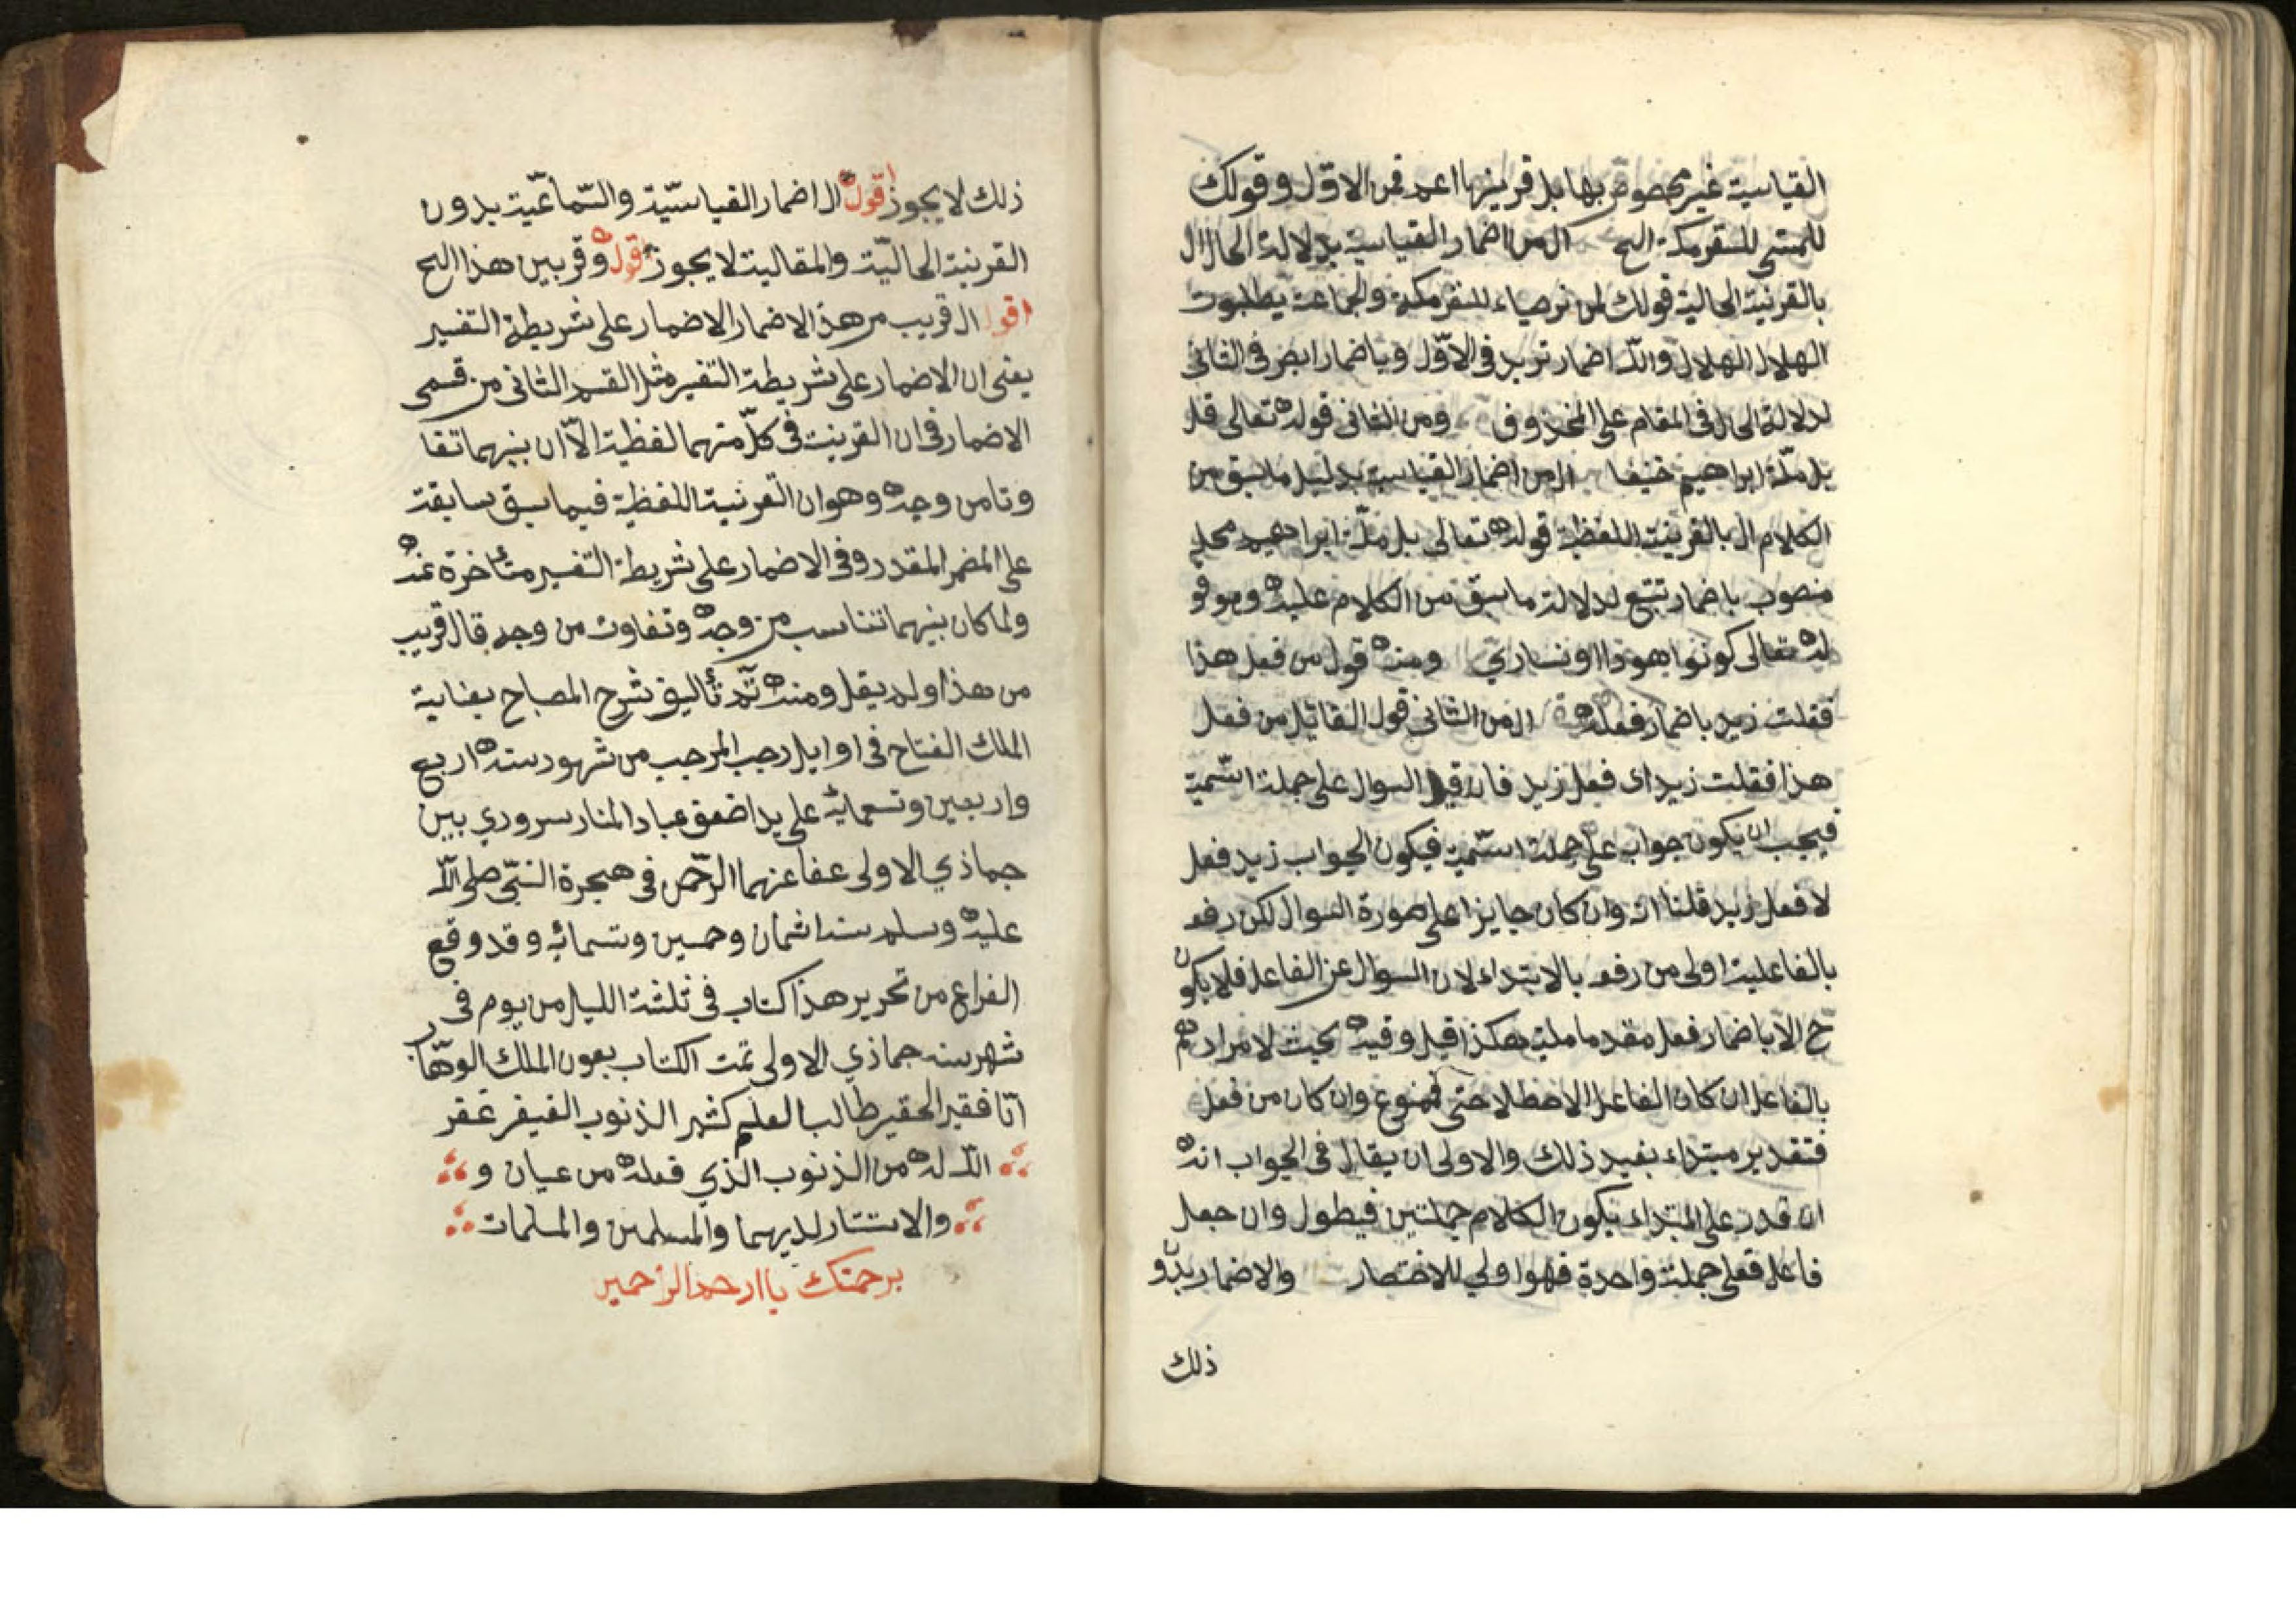 القياسية غير مخصوص بها بل قرينها اعم فمن الاوّل وقولك
للمتهيّ للسفر مكة الخ ال من اضمار القياسية بدلالة الحال ال
بالقرنية الحالية قولك لمن نرصياء للسفر مكة ولجماعة يطلبون
الهلال الهلال والله اضمار تريد في الاوّل وباضمار ابصر في الثاني
لدلالة الحال في المقام على المحذوف ومن الثاني قوله تعالى قل
بل ملّة ابراهيم حنيفا ال من اضمار القياسية بدليل ما سبق من
الكلام ال بالقرينة اللفظية قوله تعالى بل ملّة ابراهيم محله
منصوب باضمار تتبع لدلالة ما سبق من الكلام عليه وهو قو
له تعالى كونوا هودا او نساري ومنه قول من فعل هذا
فقلت زيد باضمار فعله ال من الثاني قول القائل من فعل
هذا فقلت زيد اى فعل زيد فان قيل السوال على جملة اسّمية
فيجب ان يكون جواب على جملة اسّمية فيكون الجواب زيد فعل
لا فعل زيد قلنا انه وان كان جايزا على صورة السوال لكن رفعه
بالفاعلية اولى من رفعه بالابتداء لان السوال عن الفاعل فلا يكون
ح الا باضمار فعل مقدم هكذا قيل وفيه بحث لا مراد هم
بالفاعل ان كان الفاعل الاصطلاحى فممنوع وان كان من فعل
فتقدير مبتداء يفيد ذلك والاولى ان يقال فى الجواب انه
ان قدر على المبتداء يكون الكلام جملتين فيطول وان جعل
فاعل فعلى جملة واحدة فهو اولي للاختصار والاضمار بدو
ذلك
ذلك لا يجوز اقول ال اضمار القياسّية والسّماعّية بدون
القرنية الحاليّة والمقالية لا يجوز قوله وقريب من هذا الخ
اقول ال قريب من هذ الاضمار الاضمار على شريطة التفسير
يعنى ان الاضمار على شريطة التفسير مثل القسم الثانى من قسمى
الاضمار فى ان القرينة فى كلّ منهما لفظية الاّ ان بينهما تفا
وتا من وجه وهو ان القرنية اللفظية فيما سبق سابقة
على المضمر المقدر وفى الاضمار على شريطة التفسير متأخرة عنه
ولما كان بينهما تناسب من وجه وتفاوت من وجه قال قريب
من هذا ولم يقل ومنه تمّ تأليف شرح المصباح بعناية
الملك الفتاح فى اوايل رجب المرجب من شهور سنه اربع
واربعين وتسعمائة على يد اضعف عباد المنار سروري بين
جماذي الاولى عفا عنهما الرحمن فى هجرة النبّى صلى الله
عليه وسلم سنه اثمان وخمسين وتسمائه وقد وقع
الفراغ من تحرير هذا كتاب فى ثلثة الليل من يوم فى
شهر سنه جماذي الاولى تمت الكتاب بعون الملك الوهّاب
انا فقير الحقير طالب العلم كثير الذنوب الفيفر غفر
الله له من الذنوب الذي فعله من عيان و
والاستتار لديهما والمسلمين والمسلمات
برحمتك يا ارحم الراحمين